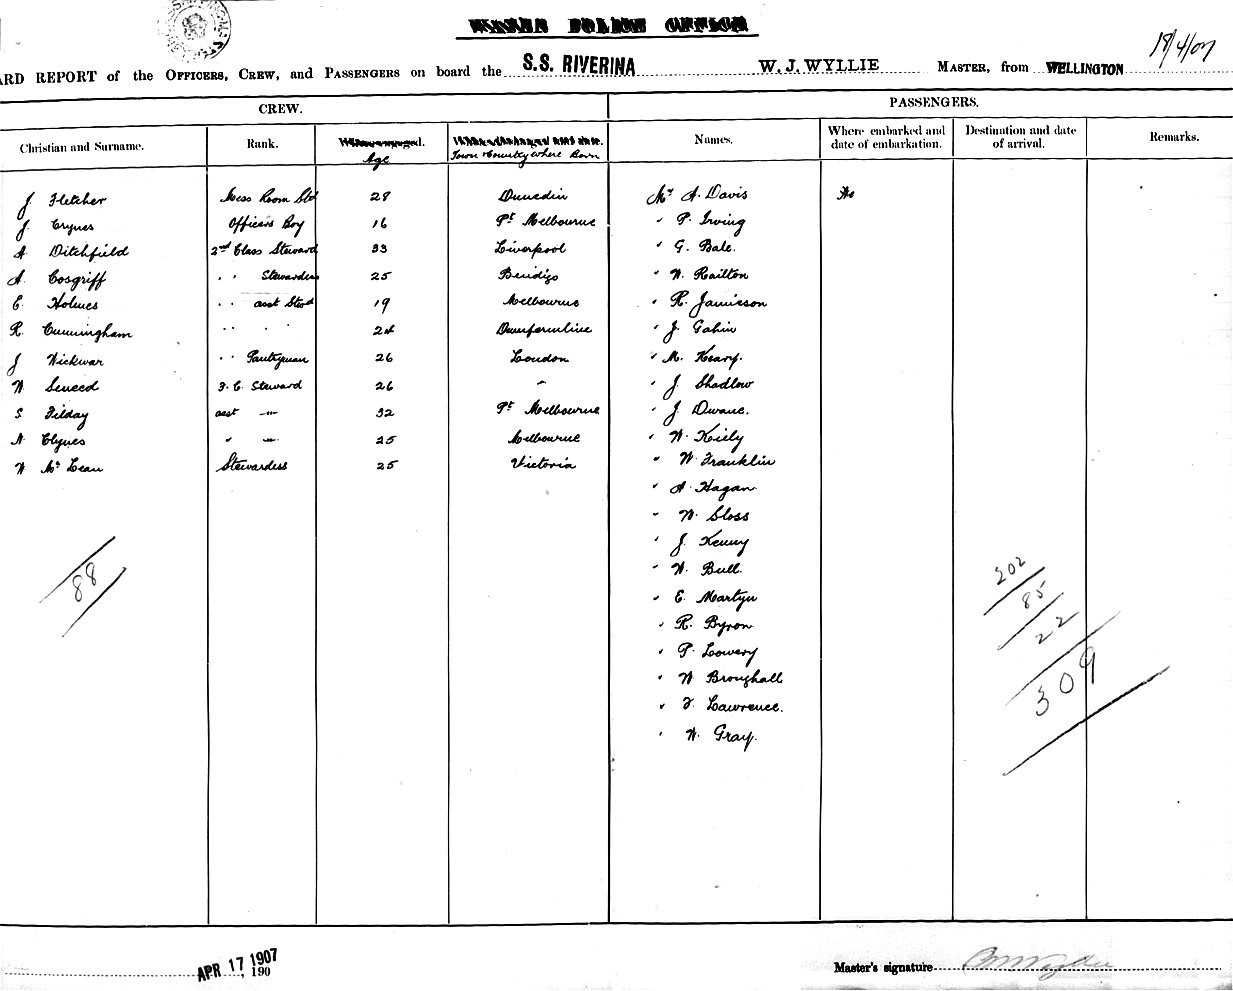 WATER POLICE OFFICE
18/4/07
ARD REPORT of the OFFICERS, CREW, and PASSENGERS on board the S.S. RIVERINA W. J. WYLLIE MASTER, from WELLINGTON
CREW. PASSENGERS.
Christian and Surname. Rank. Age Town & Country where Born Names. Where embarked and date of embarkation. Destination and date of arrival. Remarks.
J Fletcher Mess Room Std 28 Dunedin Mr A. Davis
J. Crynes Officers Boy 16 Pt Melbourne " P. Irving
A Ditchfield 2nd Class Steward 33 Liverpool " G. Bale.
A. Cosgriff " " Stewardess 25 Bendigo " W. Railton
E Holmes " " asst Std 19 Melbourne " R. Jamieson
R. Cunningham " " " " 24 Dumfermline " J. Gahin
J Wickwar " " Pantryman 26 London " M. Keary.
W Seneed 3. C. Steward 26 " " J. Shadlow
S Tilday asst " 32 Pt Melbourne " J. Dwane.
A Clynes " " 25 Melbourne " W. Kiely
W McLean Stewardess 25 Victoria " W. Franklin
" A. Hagan
" W. Sloss
" J. Kenny
" W. Bull.
" E. Martyn
" R. Byron
" P. Loowery
" W Broughall
" F. Lawrence.
" W. Gray.
88
202
85
22
309
APR 17 1907
, 190
Master's signature